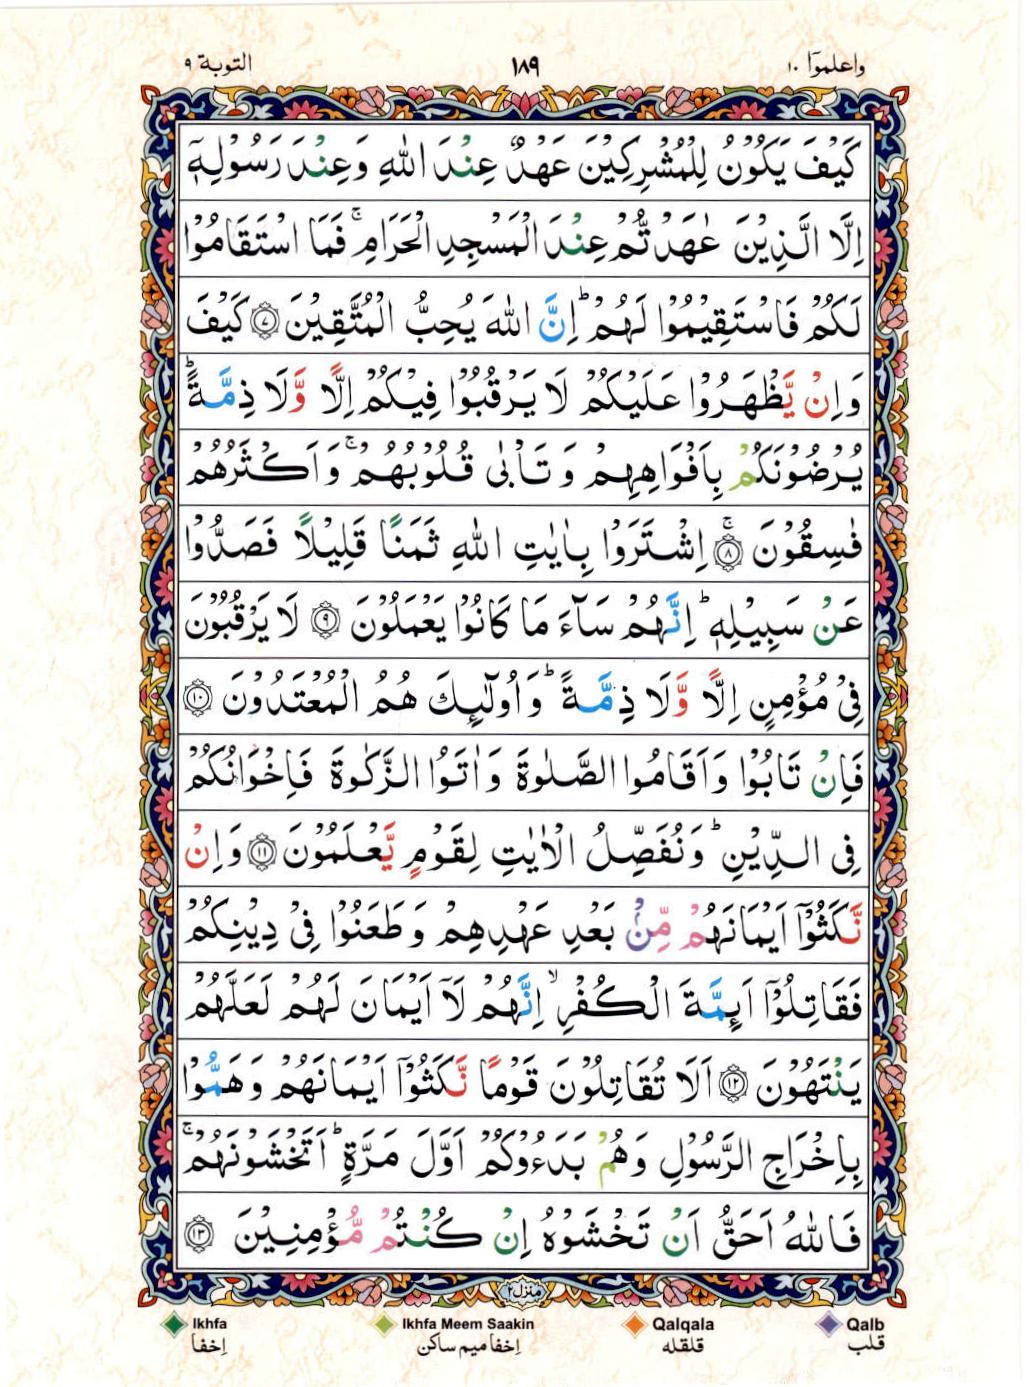 واعلموٓا ١٠
١٨٩
التوبة ٩
كَيْفَ يَكُوْنُ لِلْمُشْرِكِيْنَ عَهْدٌ عِنْدَ اللّٰهِ وَعِنْدَ رَسُوْلِهٖٓ
اِلَّا الَّذِيْنَ عٰهَدْتُّمْ عِنْدَ الْمَسْجِدِ الْحَرَامِ ۚ فَمَا اسْتَقَامُوْا
لَكُمْ فَاسْتَقِيْمُوْا لَهُمْ ؕ اِنَّ اللّٰهَ يُحِبُّ الْمُتَّقِيْنَ ۝٧ كَيْفَ
وَاِنْ يَّظْهَرُوْا عَلَيْكُمْ لَا يَرْقُبُوْا فِيْكُمْ اِلًّا وَّلَا ذِمَّةً ؕ
يُرْضُوْنَكُمْ بِاَفْوَاهِهِمْ وَتَاْبٰى قُلُوْبُهُمْ ۚ وَاَكْثَرُهُمْ
فٰسِقُوْنَ ۝٨ ۚ اِشْتَرَوْا بِاٰيٰتِ اللّٰهِ ثَمَنًا قَلِيْلًا فَصَدُّوْا
عَنْ سَبِيْلِهٖ ؕ اِنَّهُمْ سَآءَ مَا كَانُوْا يَعْمَلُوْنَ ۝٩ لَا يَرْقُبُوْنَ
فِيْ مُؤْمِنٍ اِلًّا وَّلَا ذِمَّةً ؕ وَاُولٰٓئِكَ هُمُ الْمُعْتَدُوْنَ ۝١٠
فَاِنْ تَابُوْا وَاَقَامُوا الصَّلٰوةَ وَاٰتَوُا الزَّكٰوةَ فَاِخْوَانُكُمْ
فِى الدِّيْنِ ؕ وَنُفَصِّلُ الْاٰيٰتِ لِقَوْمٍ يَّعْلَمُوْنَ ۝١١ وَاِنْ
نَّكَثُوْٓا اَيْمَانَهُمْ مِّنْۢ بَعْدِ عَهْدِهِمْ وَطَعَنُوْا فِيْ دِيْنِكُمْ
فَقَاتِلُوْٓا اَئِمَّةَ الْكُفْرِ ۙ اِنَّهُمْ لَآ اَيْمَانَ لَهُمْ لَعَلَّهُمْ
يَنْتَهُوْنَ ۝١٢ اَلَا تُقَاتِلُوْنَ قَوْمًا نَّكَثُوْٓا اَيْمَانَهُمْ وَهَمُّوْا
بِاِخْرَاجِ الرَّسُوْلِ وَهُمْ بَدَءُوْكُمْ اَوَّلَ مَرَّةٍ ؕ اَتَخْشَوْنَهُمْ ۚ
فَاللّٰهُ اَحَقُّ اَنْ تَخْشَوْهُ اِنْ كُنْتُمْ مُّؤْمِنِيْنَ ۝١٣
منزل٢
Ikhfa Ikhfa Meem Saakin Qalqala Qalb
إخفا إخفا ميم ساكن قلقله قلب